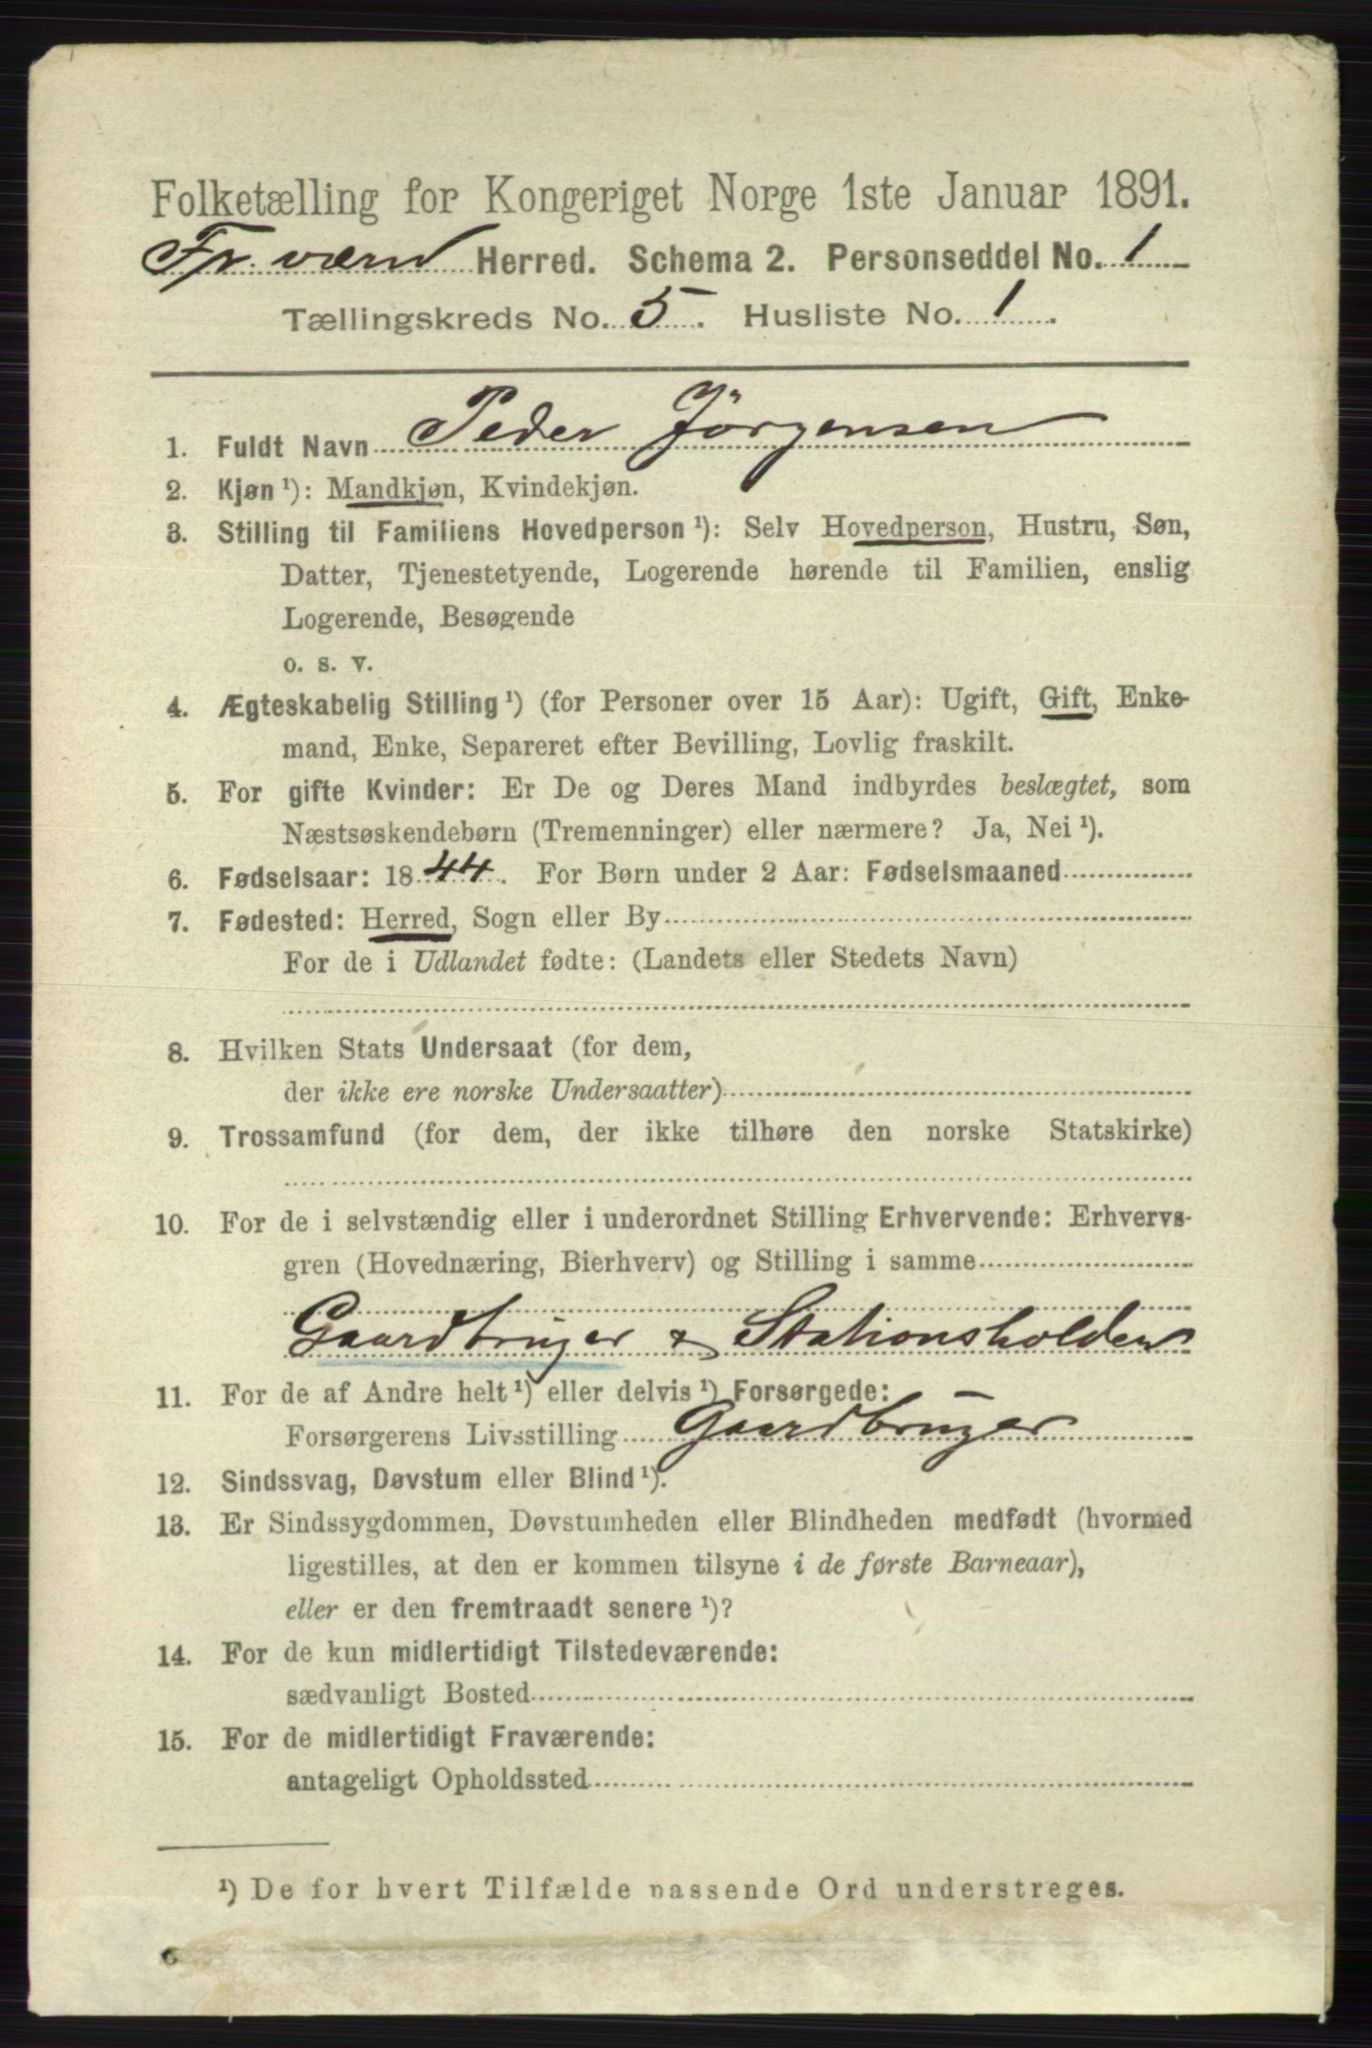 Folketælling for Kongeriget Norge 1ste Januar 1891.
Fr. værn Herred. Schema 2. Personseddel No. 1
Tællingskreds No. 5. Husliste No. 1.
1. Fuldt Navn Peder Jörgensen
2. Kjøn ¹): Mandkjøn, Kvindekjøn.
3. Stilling til Familiens Hovedperson ¹): Selv Hovedperson, Hustru, Søn,
Datter, Tjenestetyende, Logerende hørende til Familien, enslig
Logerende, Besøgende
o. s. v.
4. Ægteskabelig Stilling ¹) (for Personer over 15 Aar): Ugift, Gift, Enke-
mand, Enke, Separeret efter Bevilling, Lovlig fraskilt.
5. For gifte Kvinder: Er De og Deres Mand indbyrdes beslægtet, som
Næstsøskendebørn (Tremenninger) eller nærmere? Ja, Nei ¹).
6. Fødselsaar: 1844. For Børn under 2 Aar: Fødselsmaaned
7. Fødested: Herred, Sogn eller By
For de i Udlandet fødte: (Landets eller Stedets Navn)
8. Hvilken Stats Undersaat (for dem,
der ikke ere norske Undersaatter)
9. Trossamfund (for dem, der ikke tilhøre den norske Statskirke)
10. For de i selvstændig eller i underordnet Stilling Erhvervende: Erhvervs-
gren (Hovednæring, Bierhverv) og Stilling i samme
Gaardbruger & Stationsholder
11. For de af Andre helt ¹) eller delvis ¹) Forsørgede:
Forsørgerens Livsstilling Gaardbruger
12. Sindssvag, Døvstum eller Blind ¹).
13. Er Sindssygdommen, Døvstumheden eller Blindheden medfødt (hvormed
ligestilles, at den er kommen tilsyne i de første Barneaar),
eller er den fremtraadt senere ¹)?
14. For de kun midlertidigt Tilstedeværende:
sædvanligt Bosted
15. For de midlertidigt Fraværende:
antageligt Opholdssted
¹) De for hvert Tilfælde passende Ord understreges.
6